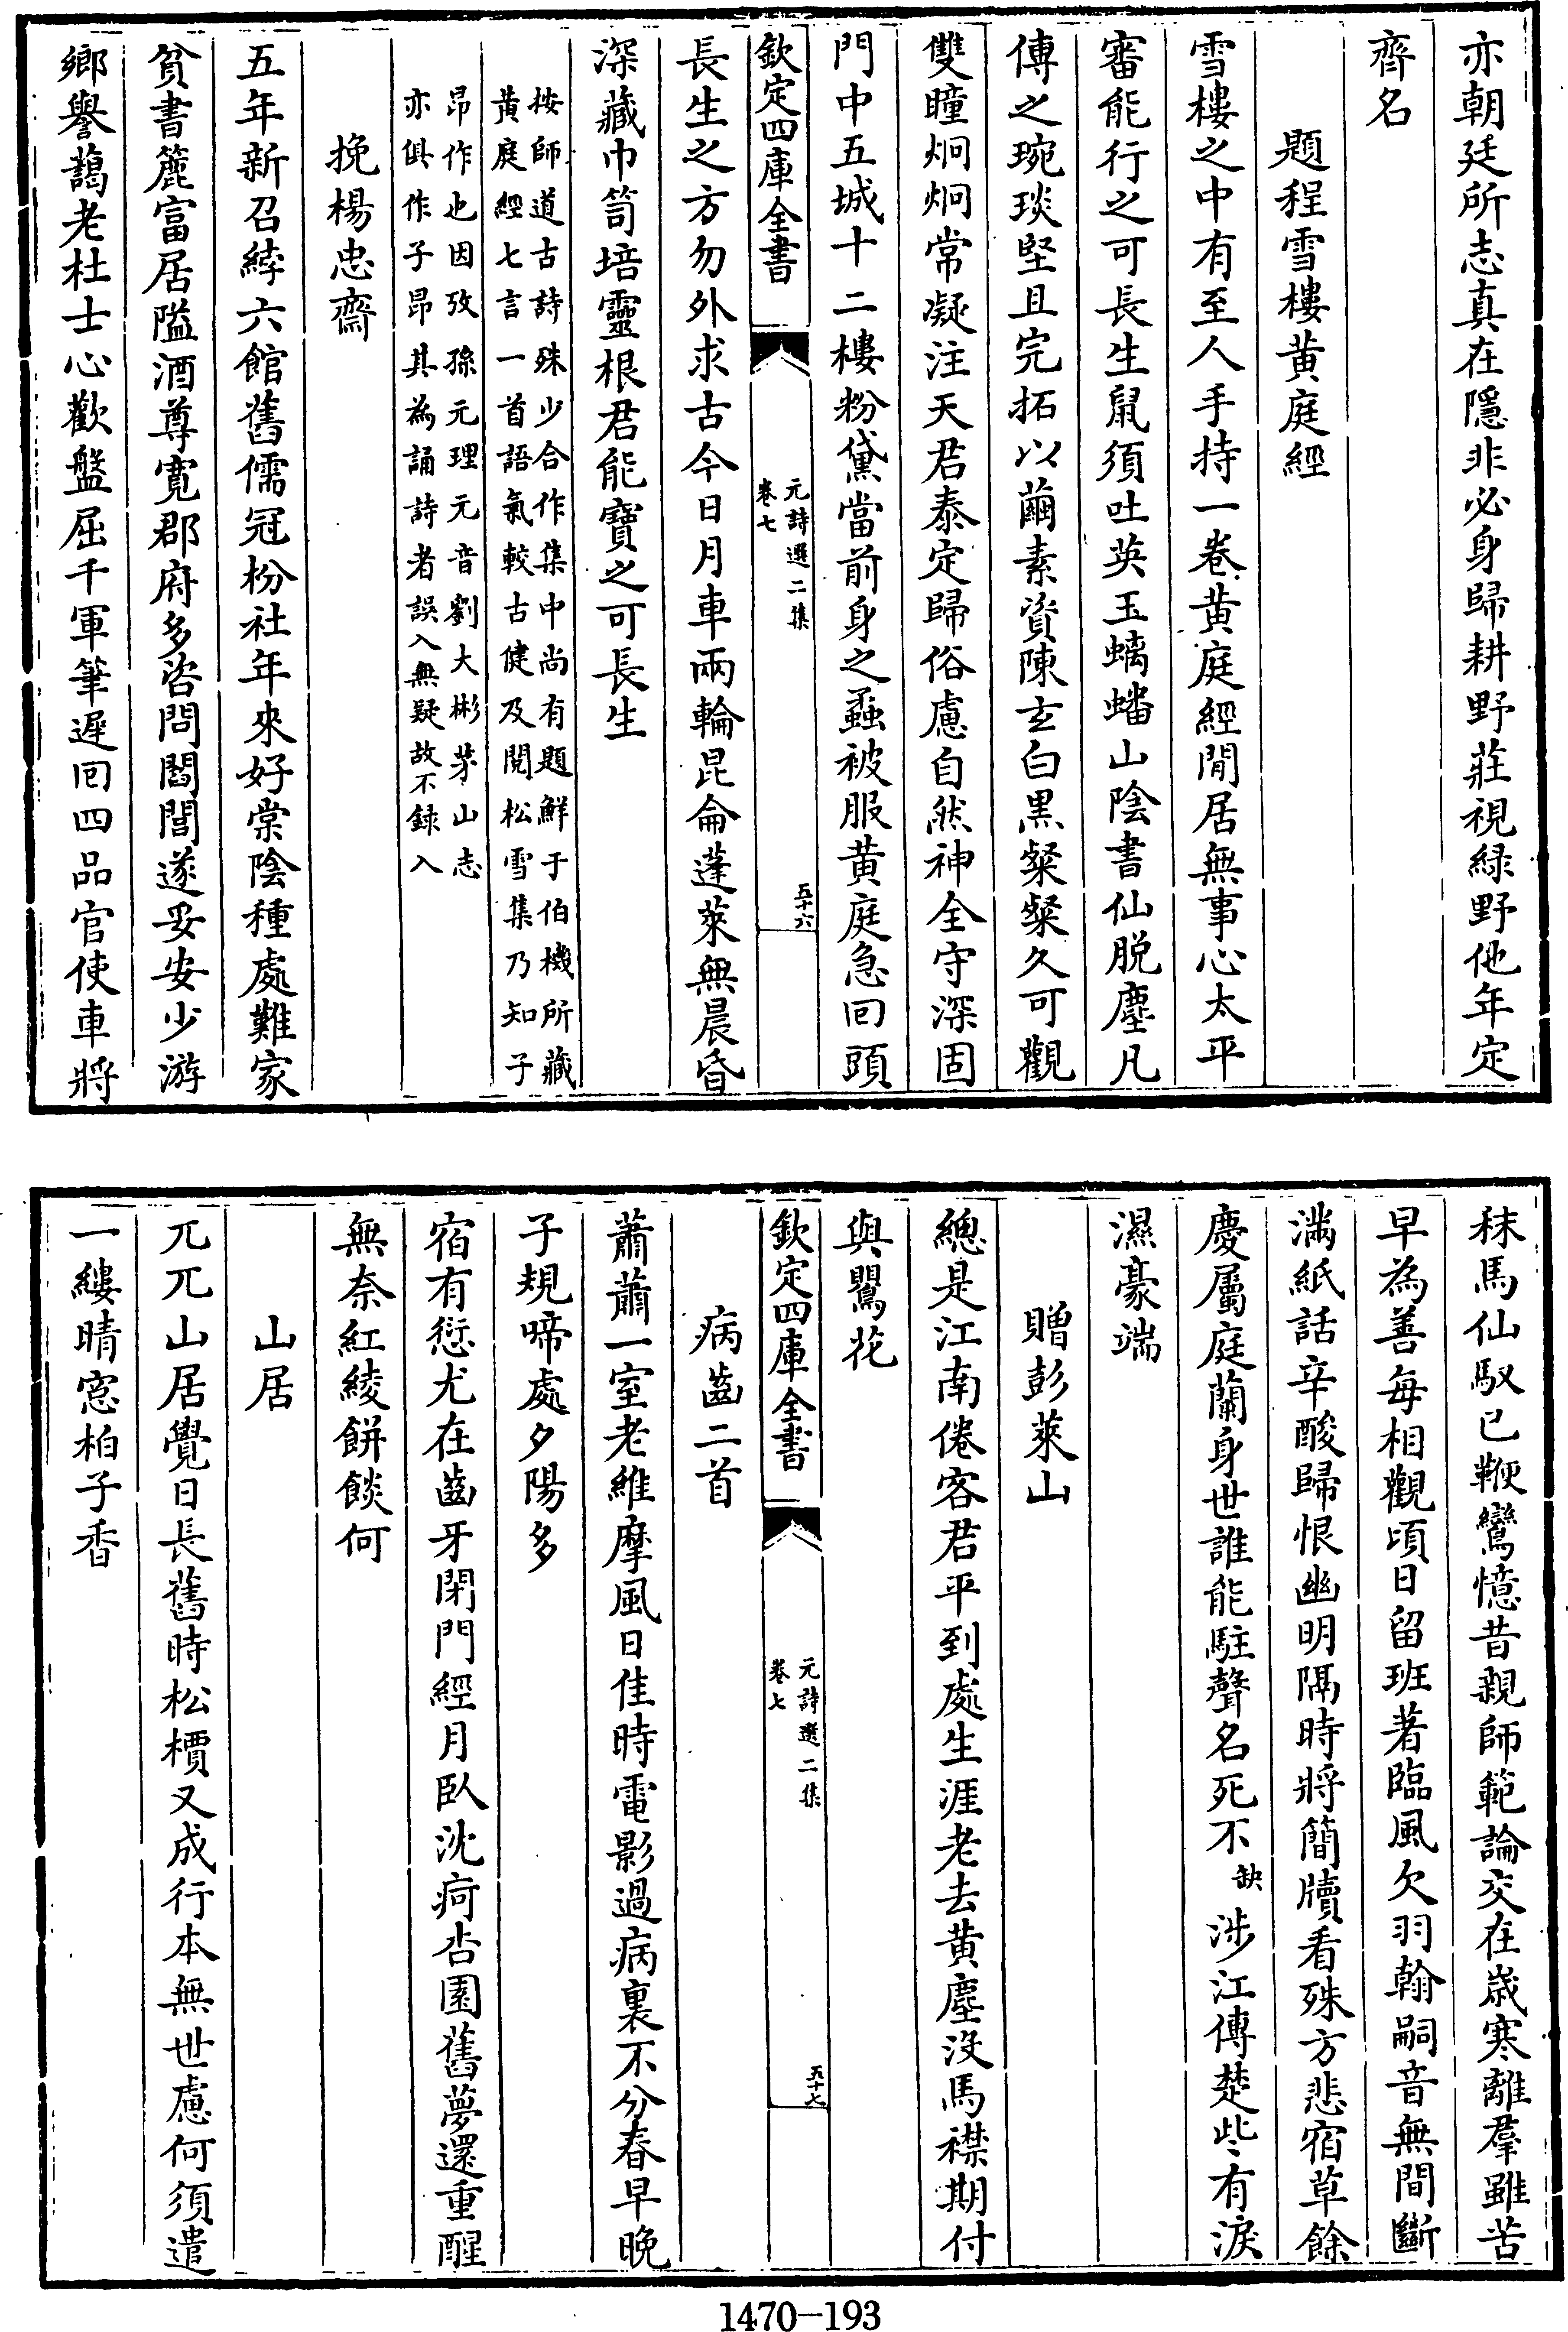 亦朝廷所志真在隱非必身歸耕野莊視綠野他年定
齊名
題程雪樓黄庭經
雪樓之中有至人手持一卷黄庭經閒居無事心太平
審能行之可長生鼠須吐英玉螭蟠山陰書仙脱塵凡
傳之琬琰堅且完拓以繭素資陳玄白黒粲粲久可觀
雙瞳炯炯常凝注天君泰定歸俗慮自然神全守深固
門中五城十二樓粉黛當前身之蝨被服黄庭急回頭
欽定四庫全書
元詩選二集
卷七
五十六
長生之方勿外求古今日月車兩輪昆侖蓬萊無晨昏
深藏巾笥培靈根君能寶之可長生
按師道古詩殊少合作集中尚有題鮮于伯機所藏
黄庭經七言一首語氣較古健及閱松雪集乃知子
昂作也因攷孫元理元音劉大彬茅山志
亦俱作子昂其為誦詩者誤入無疑故不録入
挽楊忠齋
五年新召綍六館舊儒冠枌社年來好棠陰種處難家
貧書簏富居隘酒尊寛郡府多咨問閻閭遂妥安少游
鄉譽藹老杜士心歡盤屈千軍筆遲回四品官使車將
秣馬仙馭已鞭鸞憶昔親師範論交在歳寒離羣雖苦
早為善每相觀頃日留班著臨風欠羽翰嗣音無間斷
滿紙話辛酸歸恨幽明隔時將簡牘看殊方悲宿草餘
慶屬庭蘭身世誰能駐聲名死不缺涉江傳楚些有淚
濕豪端
贈彭萊山
總是江南倦客君平到處生涯老去黄塵没馬襟期付
與鸎花
欽定四庫全書
元詩選二集
卷七
五十七
病齒二首
蕭蕭一室老維摩風日佳時電影過病裏不分春早晚
子規啼處夕陽多
宿有愆尤在齒牙閉門經月卧沈疴杏園舊夢還重醒
無奈紅綾餅餤何
山居
兀兀山居覺日長舊時松檟又成行本無世慮何須遣
一縷晴窓柏子香
1470—193